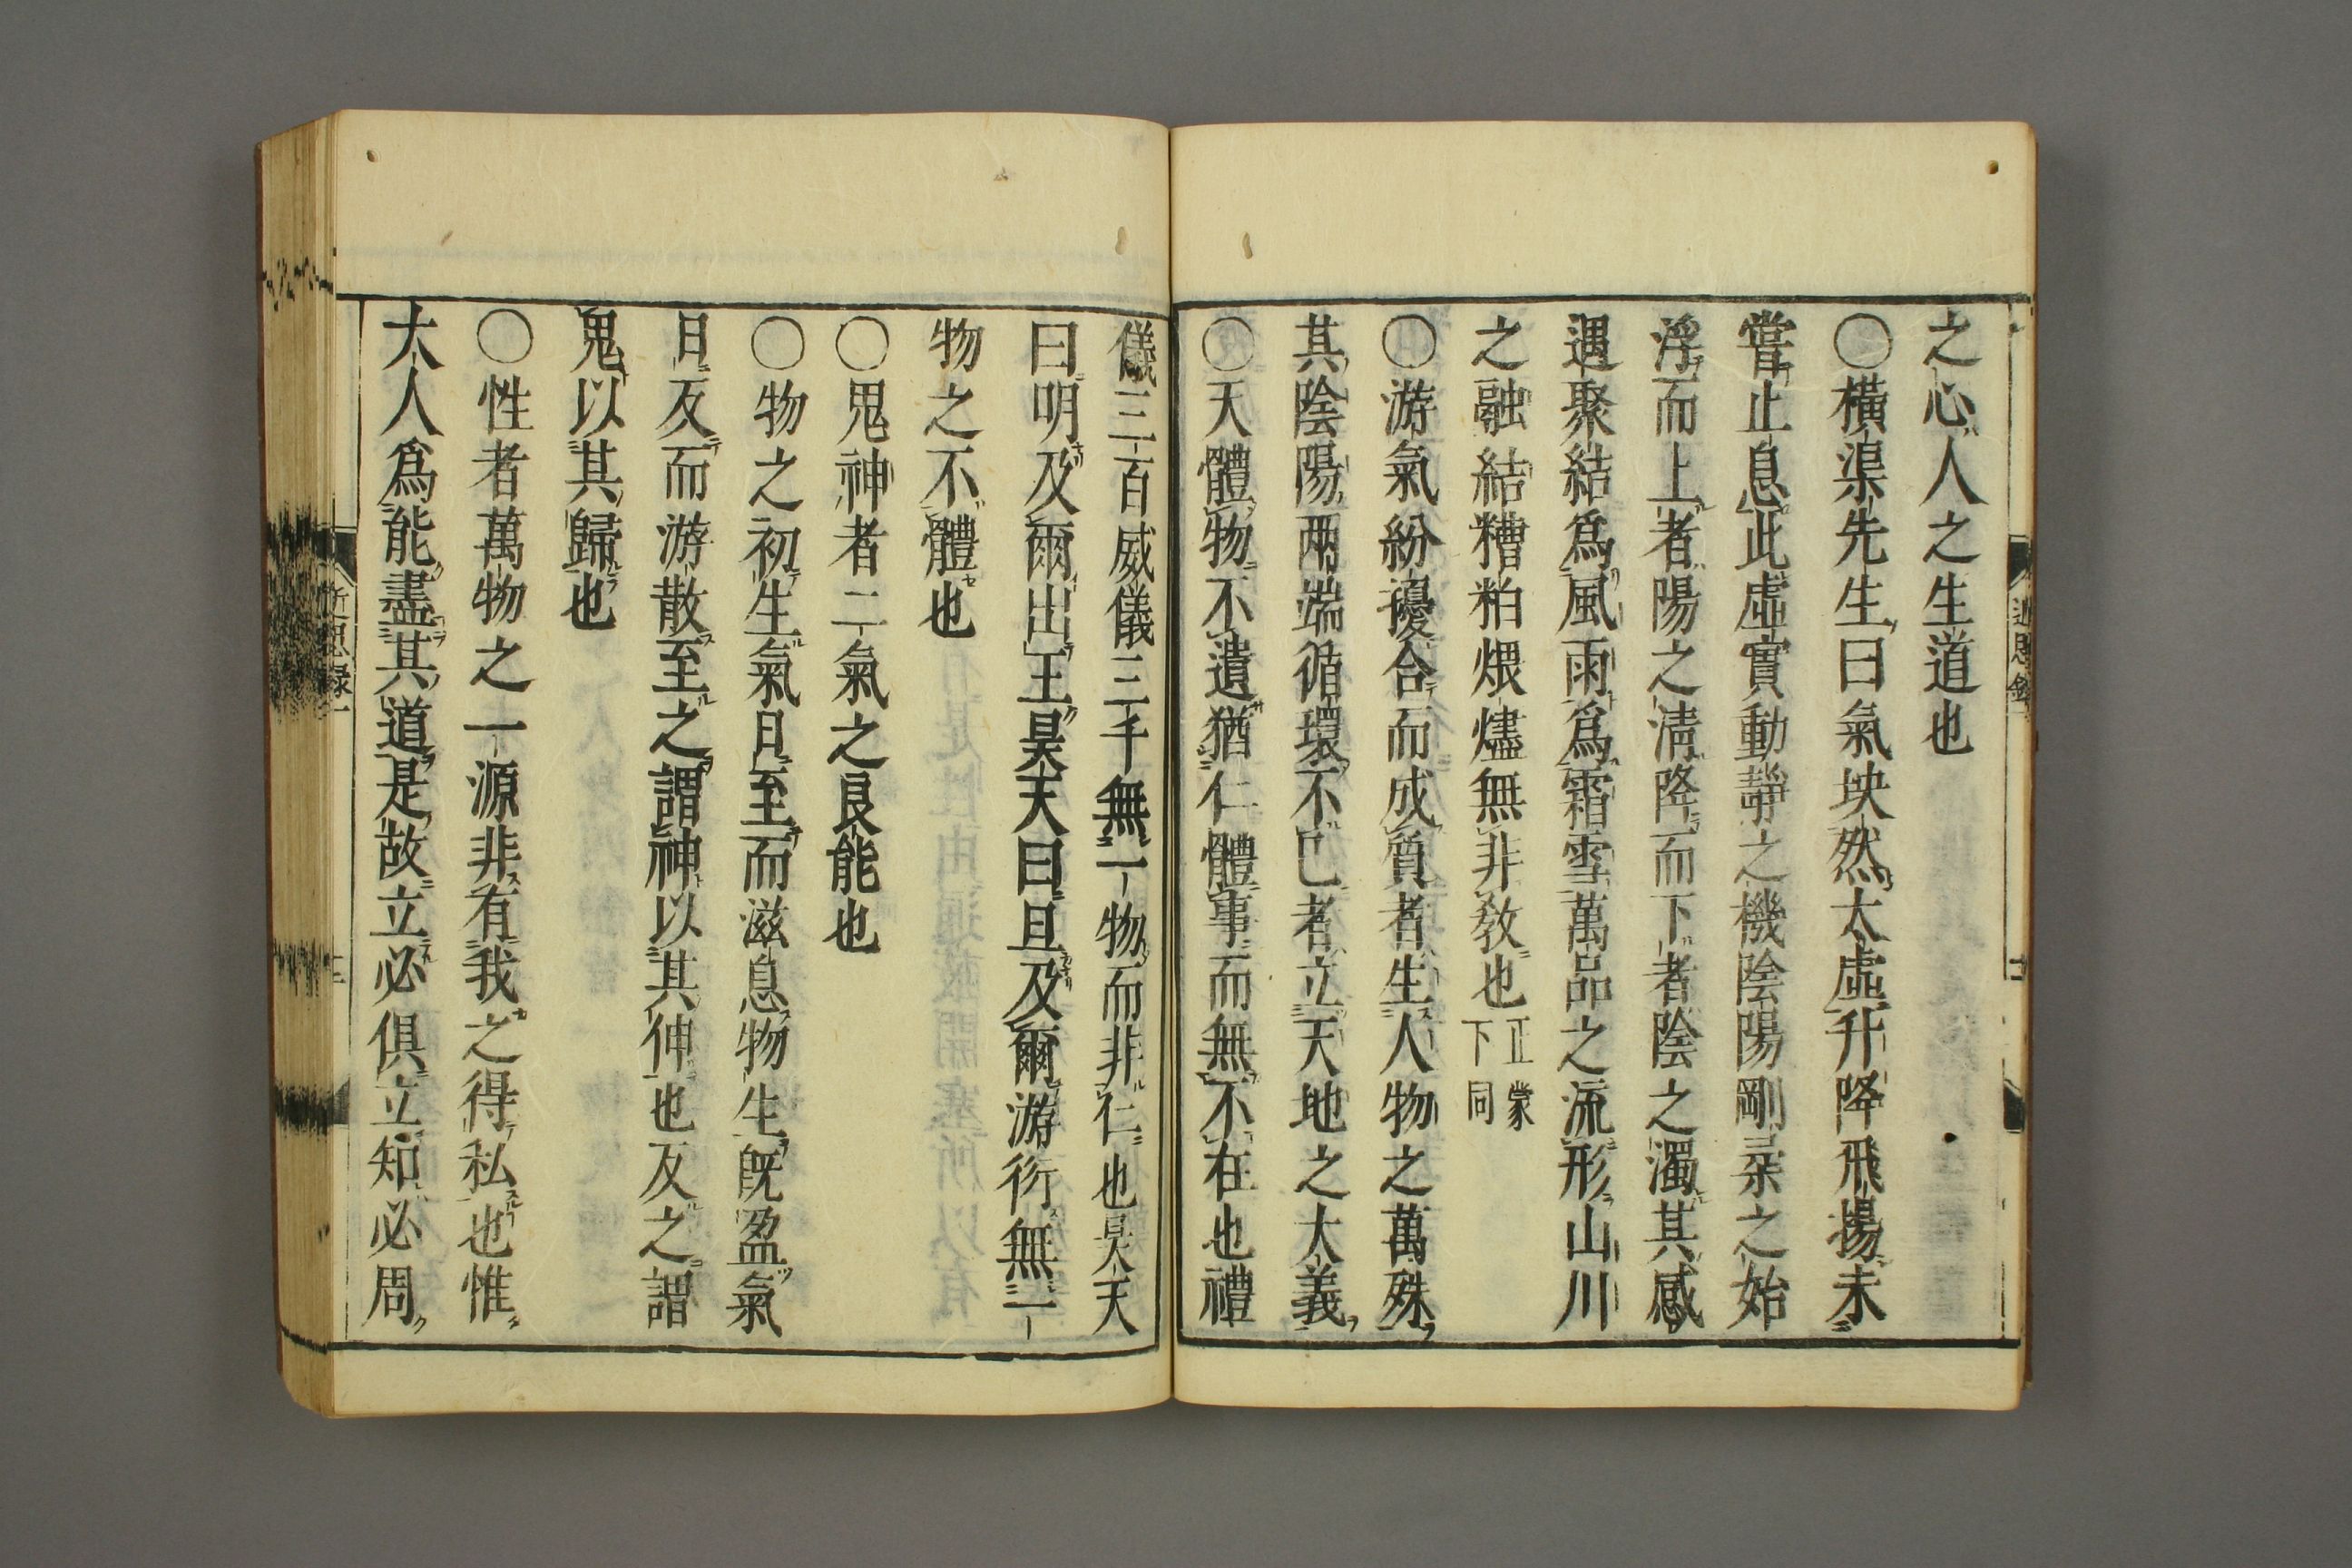 之心人之生道也
○橫渠先生曰氣坱然太虛升降飛揚未
嘗止息此虛實動靜之機陰陽剛柔之始
浮而上者陽之淸降而下者陰之濁其感
遇聚結爲風雨爲霜雪萬品之流形山川
之融結糟粕煨燼無非敎也正蒙下同
○游氣紛擾合而成質者生人物之萬殊
其陰陽兩端循環不已者立天地之大義
○天體物不遺猶仁體事而無不在也禮
儀三百威儀三千無一物而非仁也昊天
曰明及爾出王昊天曰旦及爾游衍無一
物之不體也
○鬼神者二氣之良能也
○物之初生氣日至而滋息物生旣盈氣
日反而游散至之謂神以其伸也反之謂
鬼以其歸也
○性者萬物之一源非有我之得私也惟
大人爲能盡其道是故立必俱立知必周
近思錄
近思錄一